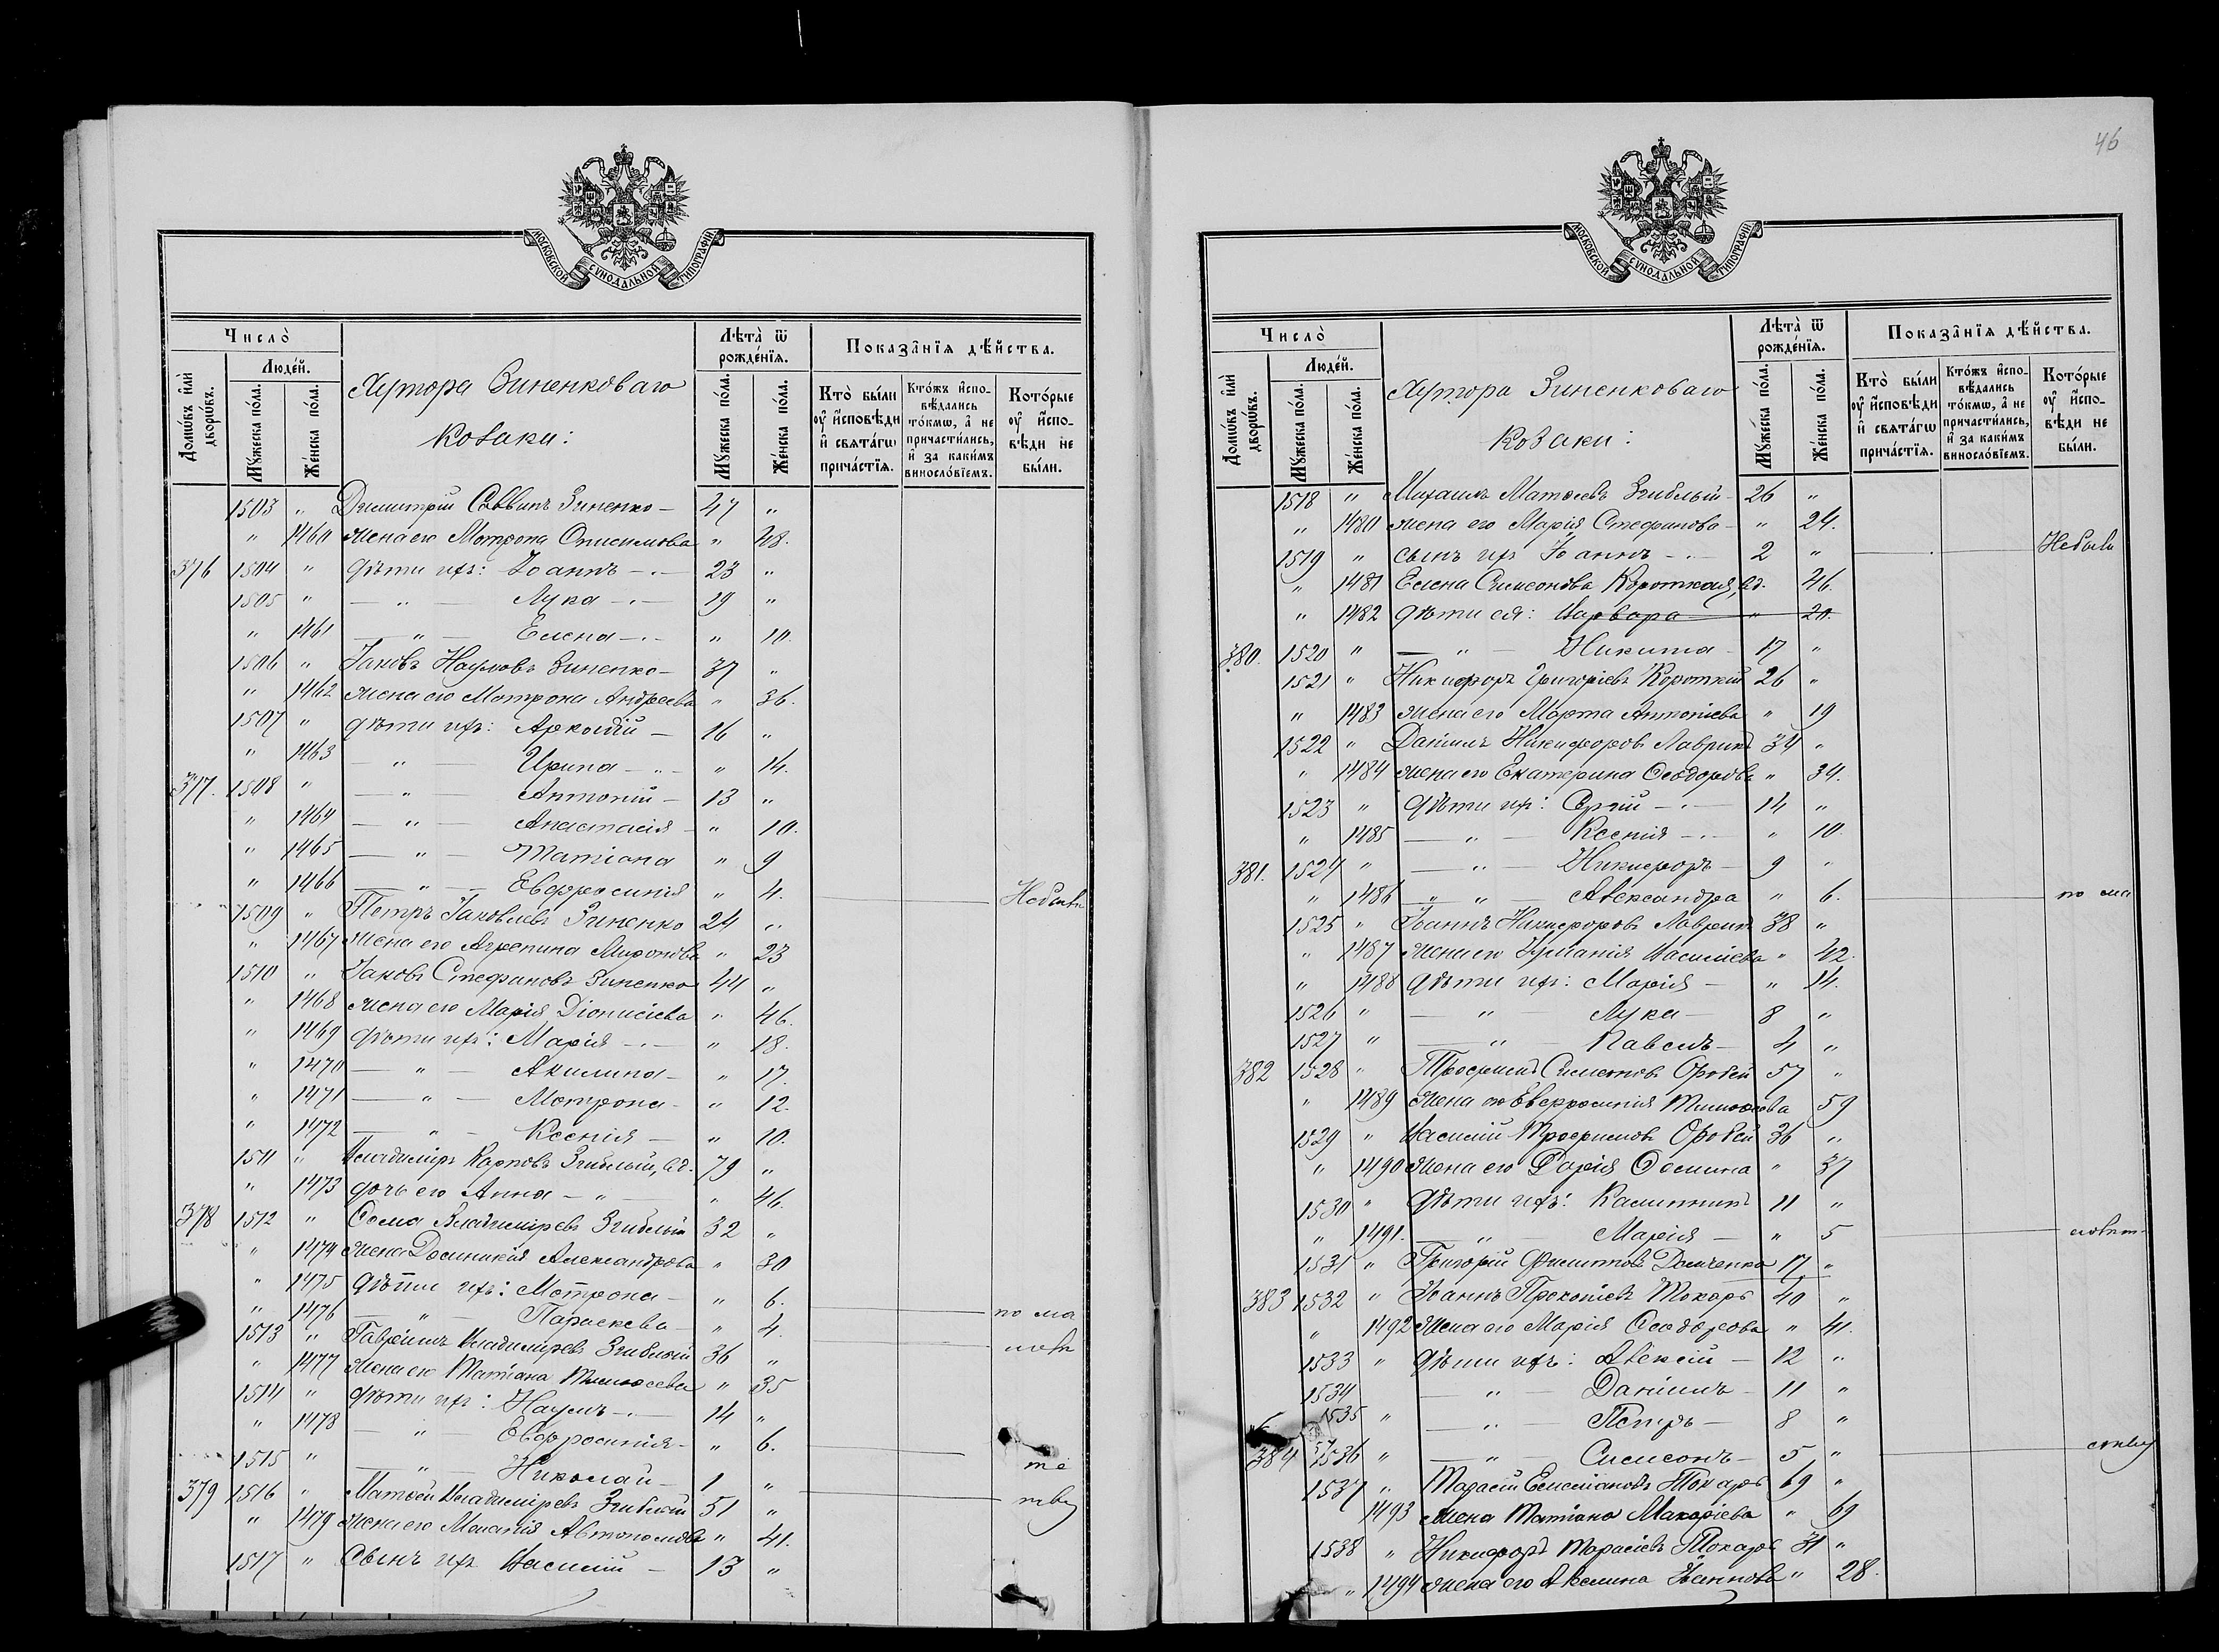 МОСКОВСКОЙ СУНОДАЛЬНОЙ ТИПОГРАФІИ
Число̀
Лѣта̀ ѿ рожде́нїѧ.
Показа̑нїѧ дѣ́йства.
Домѡ́въ и҆лѝ дворѡ́въ.
Люде́й.
Мꙋ́жеска по́ла.
Же́нска по́ла.
Хутора Зиненковаго
Козаки:
Мꙋ́жеска по́ла.
Же́нска по́ла.
Кто̀ бы́ли оу҆ и҆сповѣди и҆ свѧта́гѡ прича́стїѧ.
Кто́жъ и҆споვѣ́дались то́кмѡ, а҆ не причасти́лись, и҆ за каки́мъ винословїемъ.
Кото́рые оу҆ и҆споვѣ́ди не бы́ли.
1503 " Димитрій Саввинъ Зиненко - 47 "
" 1460 жена его Мотрона Онисимова " 48.
376 1504 " дѣти ихъ: Іоаннъ - 23 "
1505 " — " — Лука - 19 "
" 1461 — " — Елена - " 10.
1506 " Іаковъ Наумовъ Зиненко - 37 "
" 1462 жена его Мотрона Андреева " 36.
1507 " дѣти ихъ: Аркадій - 16 "
" 1463 — " — Ирина - " 14.
377. 1508 " — " — Антоній - 13 "
" 1464 — " — Анастасія - " 10.
" 1465 — " — Татіана " 9
" 1466 — " — Евфросинія " 4. Небыв
1509 " Петръ Іаковлевъ Зиненко 24 "
" 1467 жена его Агрепина Миронова " 23
1510 " Іаковъ Стефановъ Зиненко 44 "
" 1468 жена его Марія Діонисіева " 46.
" 1469 дѣти ихъ: Марія - " 18.
" 1470 — " — Акилина - " 17.
" 1471 — " — Мотрона - " 12.
" 1472 — " — Ксенія - " 10.
1511 " Владиміръ Карповъ Згиблый, вд. 79 "
" 1473 дочь его Анна - " 46.
378 1512 " Ѳома Владиміревъ Згиблый 32 "
" 1474 жена Домникія Александрова " 30
" 1475 дѣти ихъ: Мотрона - " 6.
" 1476 — " — Параскева - " 4. по ма
1513 " Гавріилъ Владиміревъ Згиблый 36 "
" 1477 жена его Татіана Тимоѳеева " 35
1514 " дѣти ихъ: Наумъ - 14 "
" 1478 — " — Евфросинія - " 6.
1515 " — " — Николай - 1 "
379 1516 " Матѳей Владиміревъ Згиблый 51 "
" 1479 жена его Меланія Автономова " 41.
1517 " Сынъ ихъ Василій - 13 "
46
МОСКОВСКОЙ СУНОДАЛЬНОЙ ТИПОГРАФІИ
Число̀
Лѣта̀ ѿ рожде́нїѧ.
Показа̑нїѧ дѣ́йства.
Домѡ́въ и҆лѝ дворѡ́въ.
Люде́й.
Мꙋ́жеска по́ла.
Же́нска по́ла.
Хутора Зиненковаго
Козаки:
Мꙋ́жеска по́ла.
Же́нска по́ла.
Кто̀ бы́ли оу҆ и҆сповѣди и҆ свѧта́гѡ прича́стїѧ.
Кто́жъ и҆сповѣ́дались то́кмѡ, а҆ не причасти́лись, и҆ за каки́мъ винословїемъ.
Кото́рые оу҆ и҆сповѣ́ди не бы́ли.
1518 " Михаилъ Матѳеевъ Згиблый - 26 "
" 1480 жена его Марія Стефанова - " 24.
1519 " сынъ ихъ Іоаннъ - 2 " Небыли
" 1481 Елена Симеонова Короткая, вд. 46.
" 1482 дѣти ея: Варвара " 20.
380. 1520 " — " — Никита - 17 "
1521 " Никифоръ Григоріевъ Короткій 26 "
" 1483 жена его Марта Антоніева " 19
1522 " Даніилъ Никифоровъ Лавринъ 34 "
" 1484 жена его Екатерина Ѳеодорова " 34.
1523 " дѣти ихъ: Сергій - 14 "
" 1485 — " — Ксенія - " 10
381. 1524 " — " — Никифоръ - 9 "
" 1486 — " Александра " 6. по ма
1525 " Іоаннъ Никифоровъ Лавринъ 38 "
" 1487 жена его Іуліанія Василіева " 42.
" 1488 дѣти ихъ: Марія - " 14.
1526 " — " — Лука - 8 "
1527 " — " — Павелъ - 4 "
382 1528 " Трофимъ Симеоновъ Оробей 57 "
" 1489 жена его Евфросинія Тимоѳеева 59
1529 " Василій Трофимовъ Оробей 36 "
" 1490 жена его Дарія Ѳомина " 37
1530 " дѣти ихъ: Калинникъ 11 "
" 1491. — " — Марія - " 5
1531 " Григорій Филиповъ Демченко 17 "
383 1532 " Іоаннъ Прокопіевъ Токарь 40 "
" 1492 жена его Марія Ѳеодорова " 41.
1533 " дѣти ихъ: Алексій - 12 "
1534 — " — Даніилъ - 11 "
1535 " — " — Петръ - 8 "
384 1536 " — " — Симеонъ - 5 "
1537 " Тарасій Емеліановъ Токарь 69 "
1493 жена Татіана Макаріева " 69
1538 " Никифоръ Тарасіевъ Токарь 31 "
" 1494 жена его Акилина Іоаннова " 28.